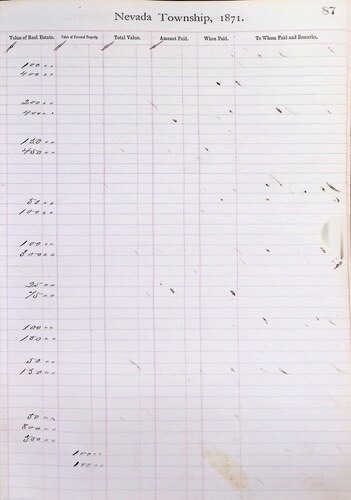 87
Nevada Township, 1871.
Value of Real Estate. Value of Personal Property. Total Value. Amount Paid. When Paid. To Whom Paid and Remarks.
100 00
400 00
200 00
400 00
150 00
450 00
50 00
100 00
100 00
300 00
25 00
75 00
100 00
150 00
50 00
150 00
50 00
800 00
300 00
100 00
100 00